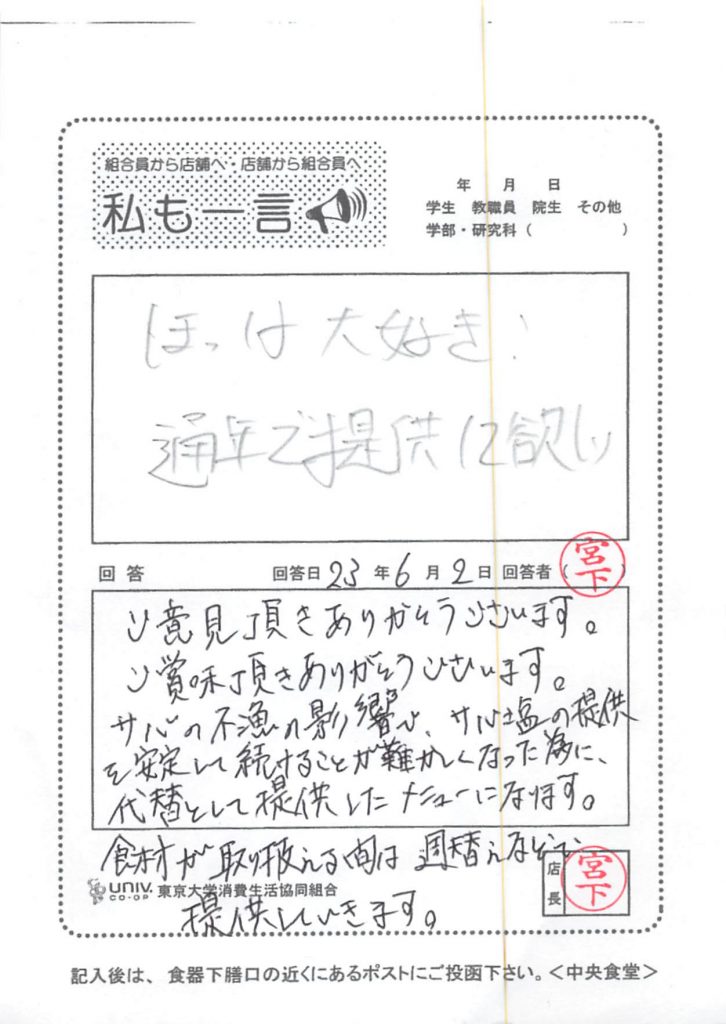 組合員から店舗へ・店舗から組合員へ
私も一言
年 月 日
学生 教職員 院生 その他
学部・研究科（ ）
ほっけ大好き!
通年で提供して欲しい
回答 回答日 23 年 6 月 2 日 回答者（宮下）
ご意見頂きありがとうございます。
ご賞味頂きありがとうございます。
サバの不漁の影響で、サバ塩の提供
を安定して続けることが難かしくなった為に、
代替として提供したメニューになります。
食材が取り扱える間は週替えなどで、
提供していきます。
店長 宮下
UNIV. CO-OP 東京大学消費生活協同組合
記入後は、食器下膳口の近くにあるポストにご投函下さい。＜中央食堂＞